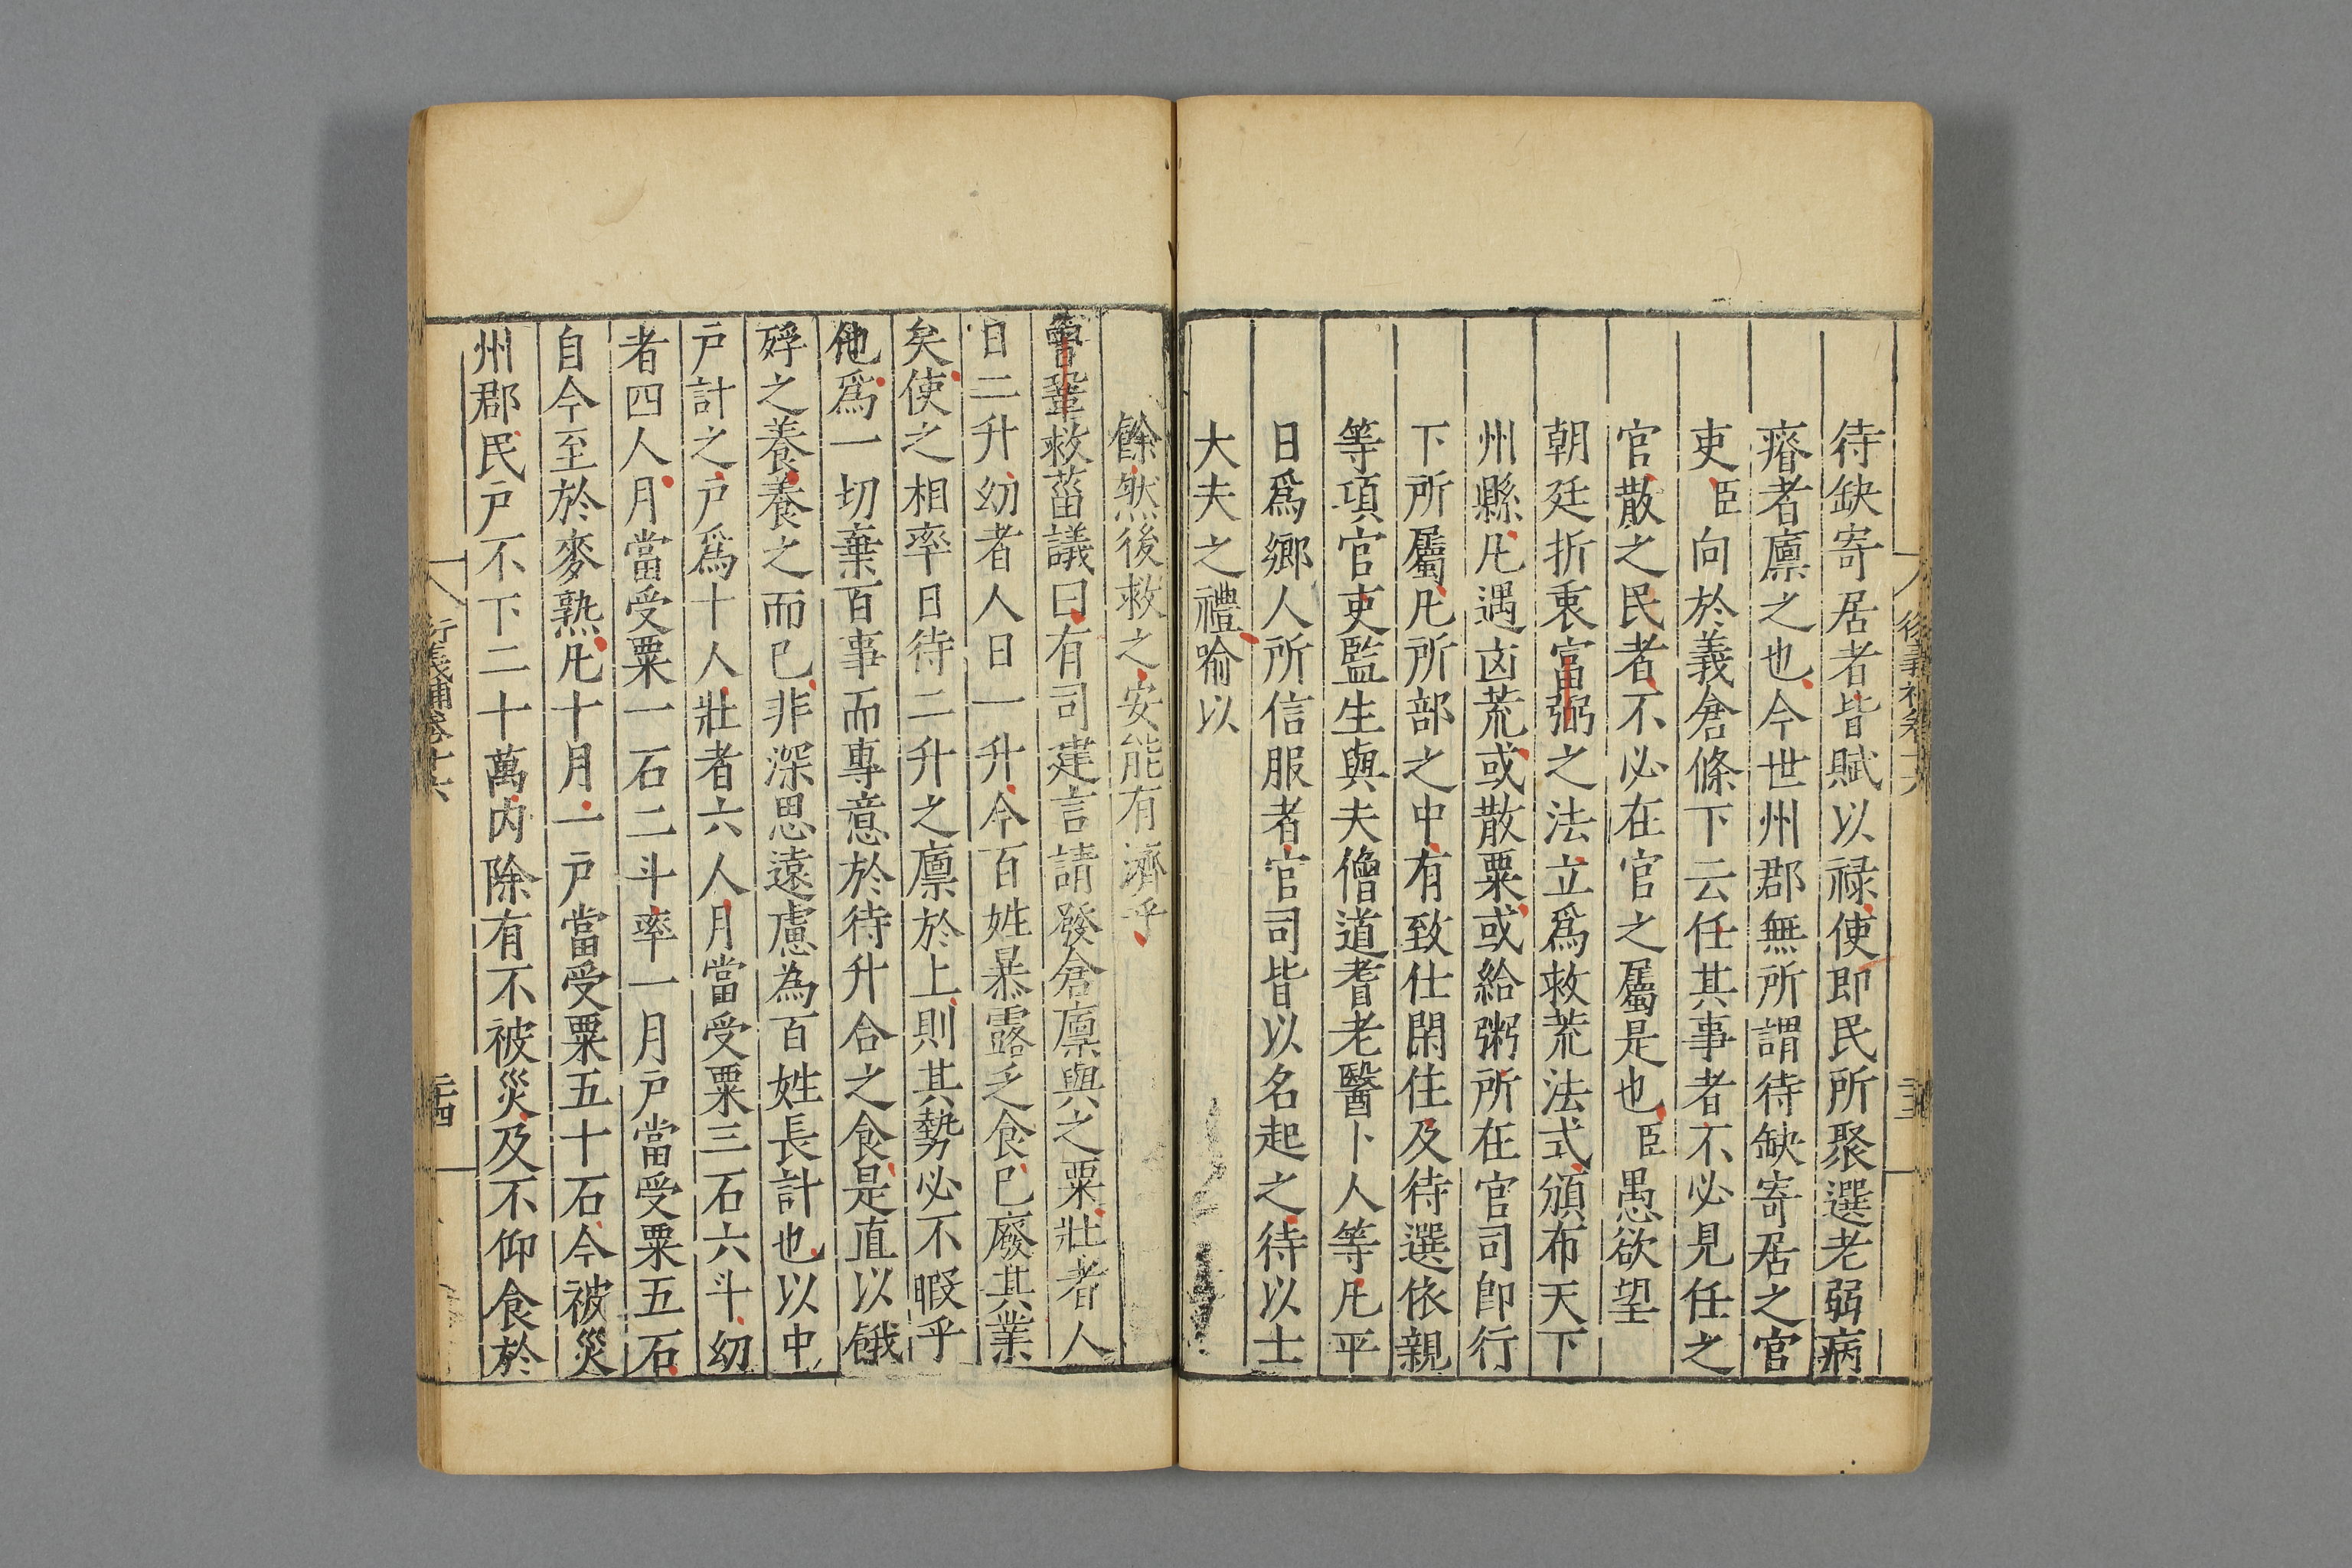 待缺寄居者皆賦以祿使即民所聚選老弱病
瘠者廪之也今世州郡無所謂待缺寄居之官
吏臣向於義倉條下云任其事者不必見任之
官散之民者不必在官之屬是也臣愚欲望
朝廷折衷富弼之法立爲救荒法式頒布天下
州縣凡遇凶荒或散粟或給粥所在官司即行
下所屬凡所部之中有致仕閑住及待選依親
等項官吏監生與夫僧道耆老醫卜人等凡平
日爲鄉人所信服者官司皆以名起之待以士
大夫之禮喻以
餘然後救之安能有濟乎
曾鞏救菑議曰有司建言請發倉廪與之粟壯者人
日二升幼者人日一升今百姓暴露乏食已廢其業
矣使之相率日待二升之廪於上則其勢必不暇乎
他爲一切棄百事而專意於待升合之食是直以餓
殍之養養之而已非深思遠慮為百姓長計也以中
戶計之戶爲十人壯者六人月當受粟三石六斗幼
者四人月當受粟一石二斗率一月戶當受粟五石
自今至於麥熟凡十月一戶當受粟五十石今被災
州郡民戶不下二十萬内除有不被災及不仰食於
行義補卷十六
二十四